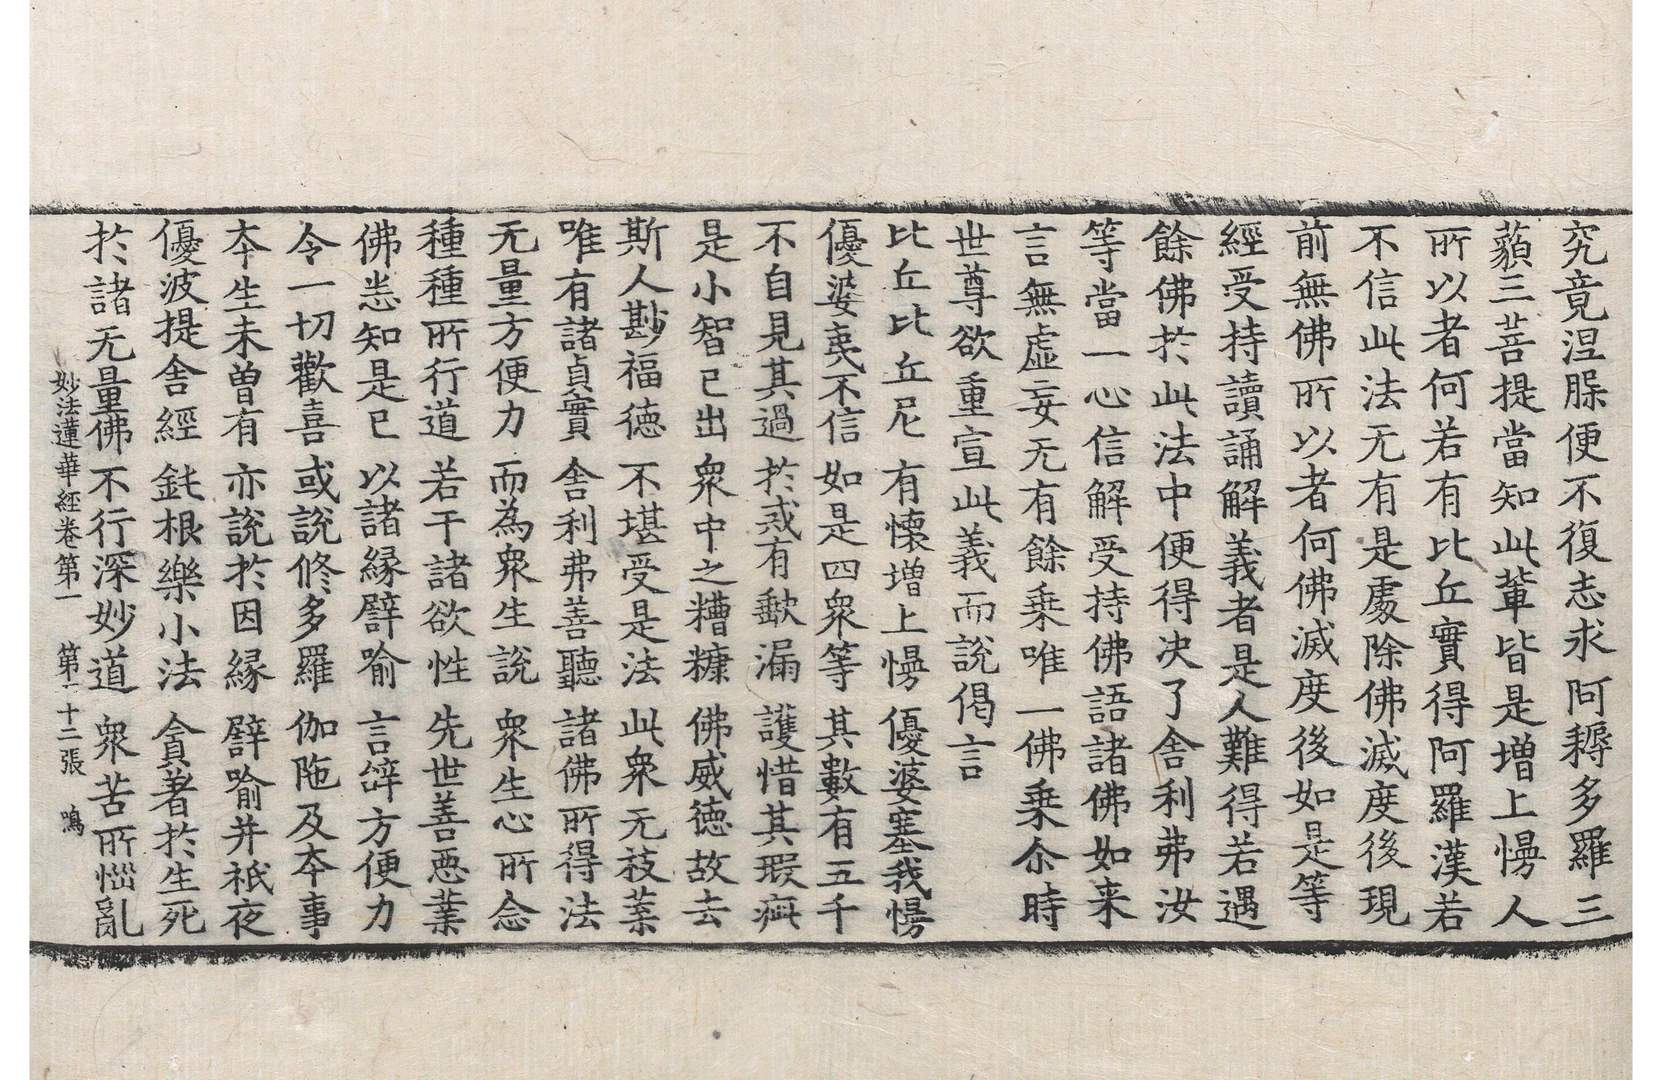 究竟涅脲便不復志求阿耨多羅三
藐三菩提當知此輩皆是增上慢人
所以者何若有比丘實得阿羅漢若
不信此法无有是處除佛滅度後現
前無佛所以者何佛滅度後如是等
經受持讀誦解義者是人難得若遇
餘佛於此法中便得决了舍利弗汝
等當一心信解受持佛語諸佛如来
言無虛妄无有餘乗唯一佛乗尒時
世尊欲重宣此義而說偈言
比丘比丘尼 有懷增上慢 優婆塞我慢
優婆夷不信 如是四衆等 其數有五千
不自見其過 於戒有歈漏 護惜其瑕疵
是小智已出 衆中之糟糠 佛威德故去
斯人尠福德 不堪受是法 此衆无枝葉
唯有諸貞實 舍利弗善聽 諸佛所得法
无量方便力 而為衆生說 衆生心所念
種種所行道 若干諸欲性 先世善惡業
佛悉知是已 以諸緣譬喻 言辝方便力
令一切歡喜 或說修多羅 伽陁及夲事
夲生未曾有 亦說於因緣 譬喻并祇夜
優波提舍經 鈍根樂小法 貪著於生死
於諸无量佛 不行深妙道 衆苦所惱亂
妙法蓮華經卷第一 第二十二張 鳴